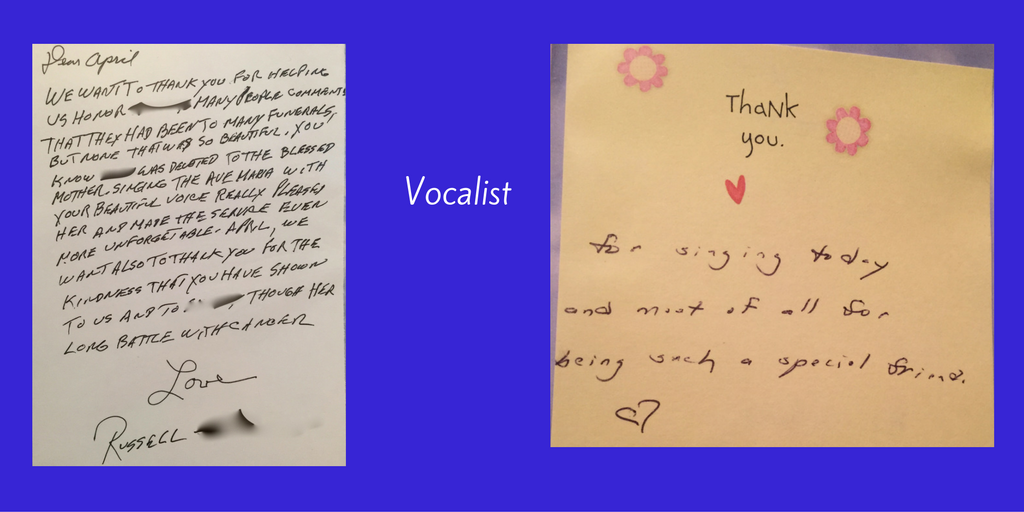 Dear April
WE WANT TO THANK YOU FOR HELPING
US HONOR MANY PEOPLE COMMENTS
THAT THEY HAD BEEN TO MANY FUNERALS,
BUT NONE THAT WAS SO BEAUTIFUL. YOU
KNOW WAS DEVOTED TO THE BLESSED
MOTHER. SINGING THE AVE MARIA WITH
YOUR BEAUTIFUL VOICE REALLY PLEASED
HER AND MADE THE SERVICE EVEN
MORE UNFORGETABLE. APRIL, WE
WANT ALSO TO THANK YOU FOR THE
KINDNESS THAT YOU HAVE SHOWN
TO US AND TO , THOUGH HER
LONG BATTLE WITH CANCER
Love
RUSSELL
Vocalist
Thank
you.
for singing today
and most of all for
being such a special friend.